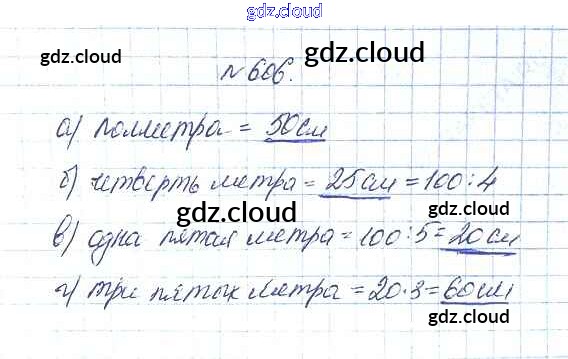 gdz.cloud
gdz.cloud gdz.cloud
№ 606.
а) полметра = 50см
б) четверть метра = 25см = 100:4
gdz.cloud
в) одна пятая метра = 100:5 = 20см
г) три пятых метра = 20·3 = 60см
gdz.cloud gdz.cloud